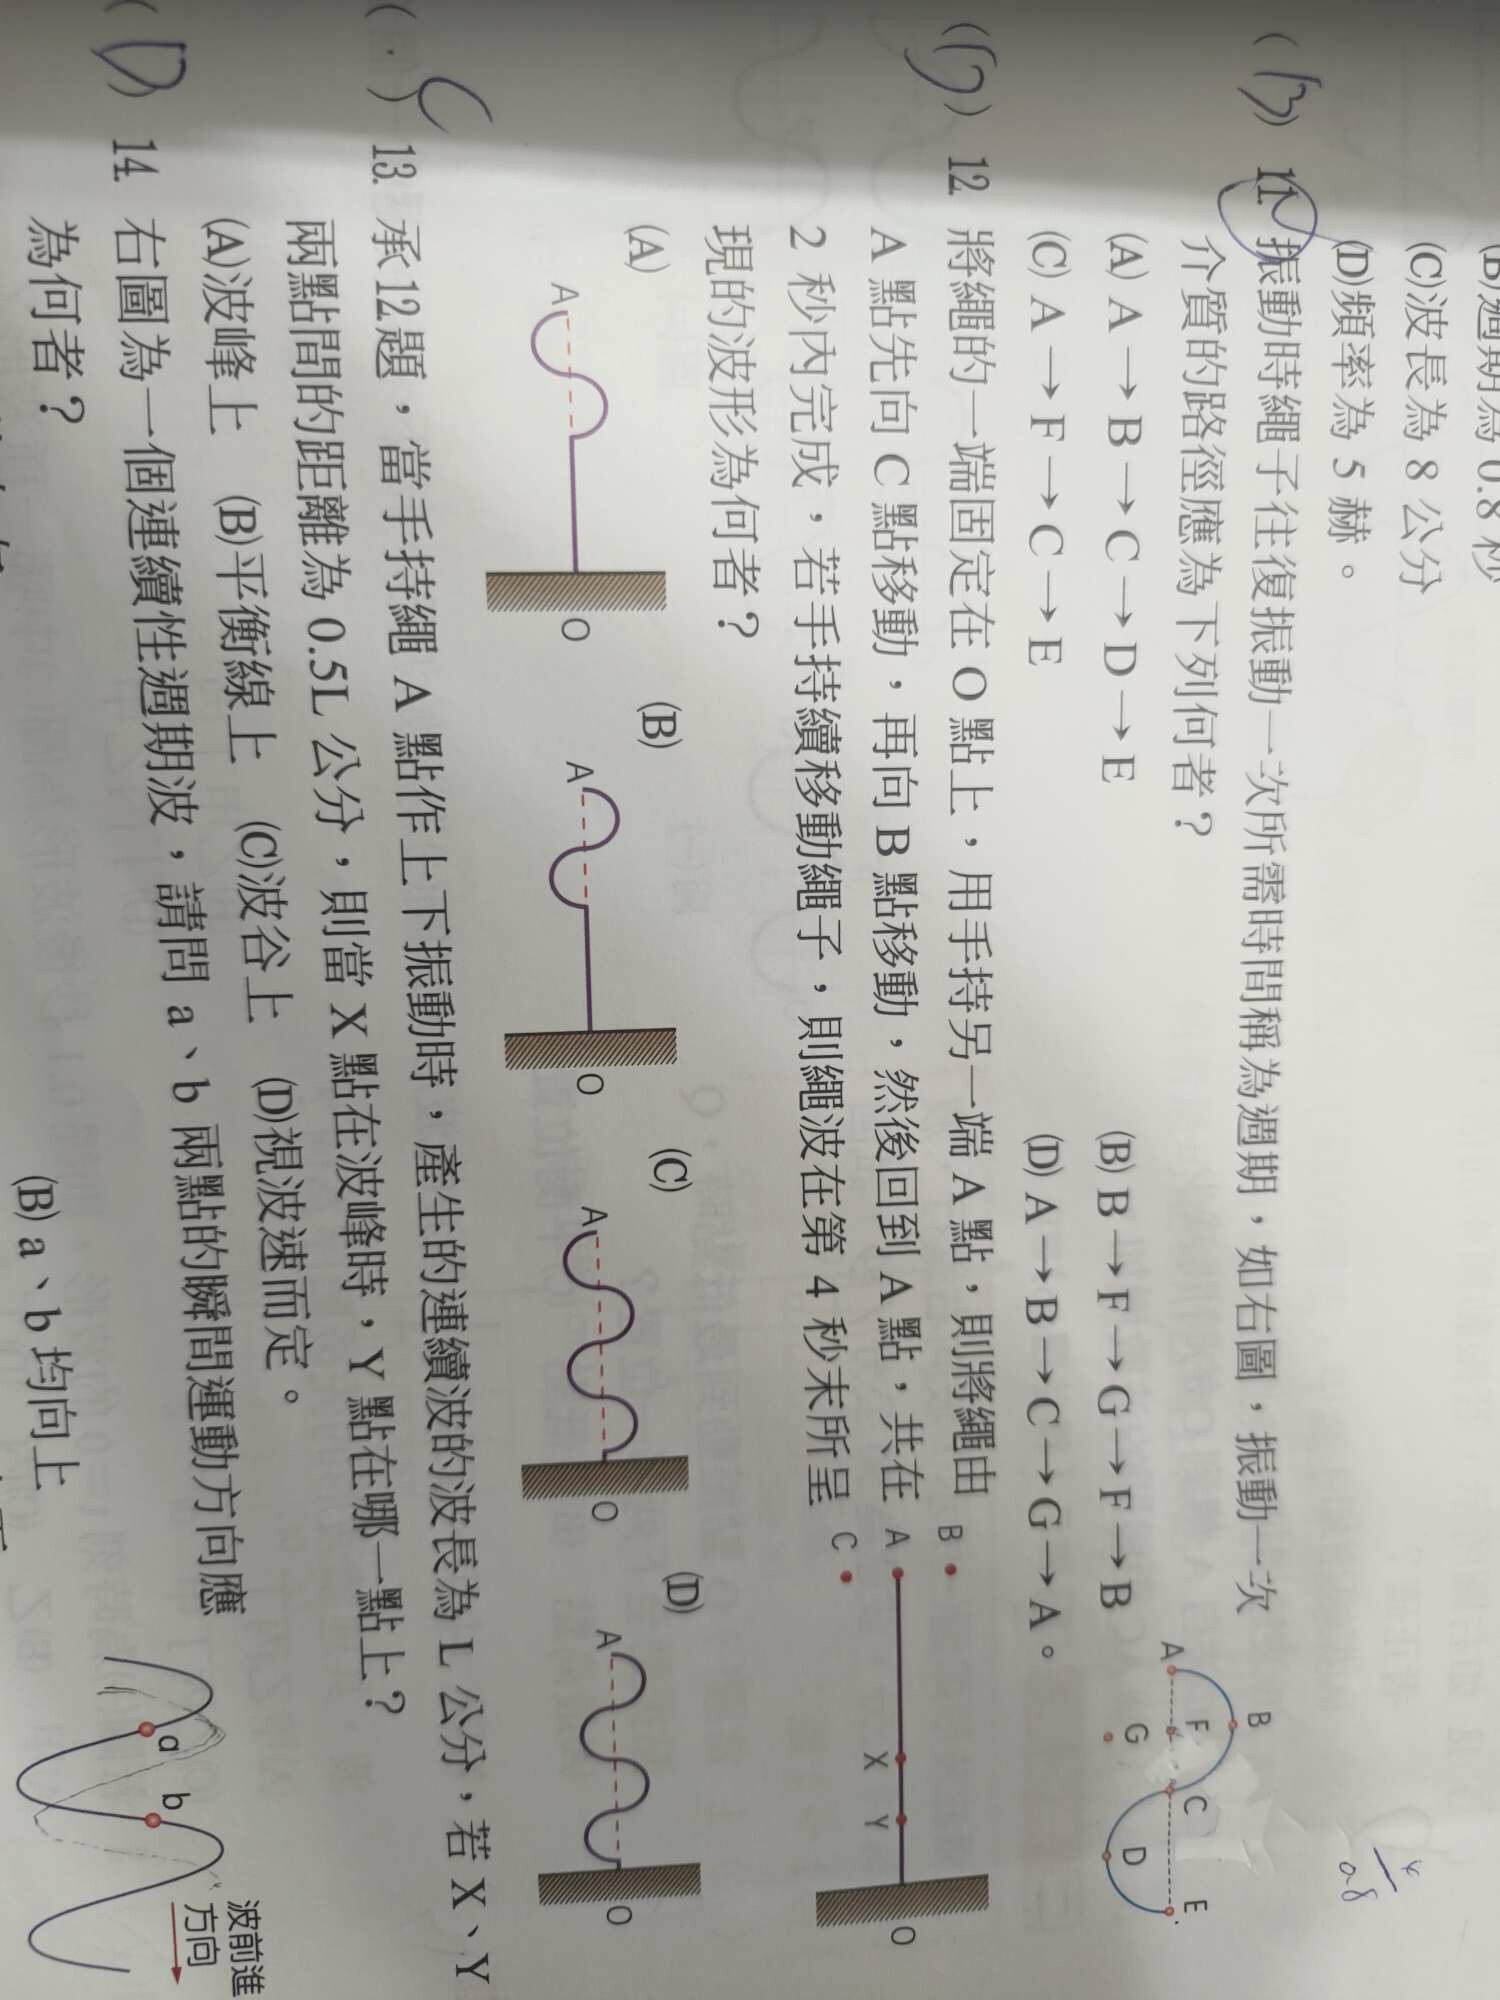 (B)週期為 0.8 秒
(C)波長為 8 公分
(D)頻率為 5 赫。
(B) 11. 振動時繩子往復振動一次所需時間稱為週期，如右圖，振動一次
介質的路徑應為下列何者？
(A) A → B → C → D → E (B) B → F → G → F → B
(C) A → F → C → E (D) A → B → C → G → A。
A B F G C D E
(D) 12. 將繩的一端固定在 O 點上，用手持另一端 A 點，則將繩由
A 點先向 C 點移動，再向 B 點移動，然後回到 A 點，共在
2 秒內完成，若手持續移動繩子，則繩波在第 4 秒末所呈
現的波形為何者？
B A C X Y O
(A) (B) (C) (D)
A O A O A O A O
( ) C 13. 承12題，當手持繩 A 點作上下振動時，產生的連續波的波長為 L 公分，若 X、Y
兩點間的距離為 0.5L 公分，則當 X 點在波峰時，Y 點在哪一點上？
(A)波峰上 (B)平衡線上 (C)波谷上 (D)視波速而定。
(D) 14. 右圖為一個連續性週期波，請問 a、b 兩點的瞬間運動方向應
為何者？
(B) a、b 均向上
a b
波前進
方向